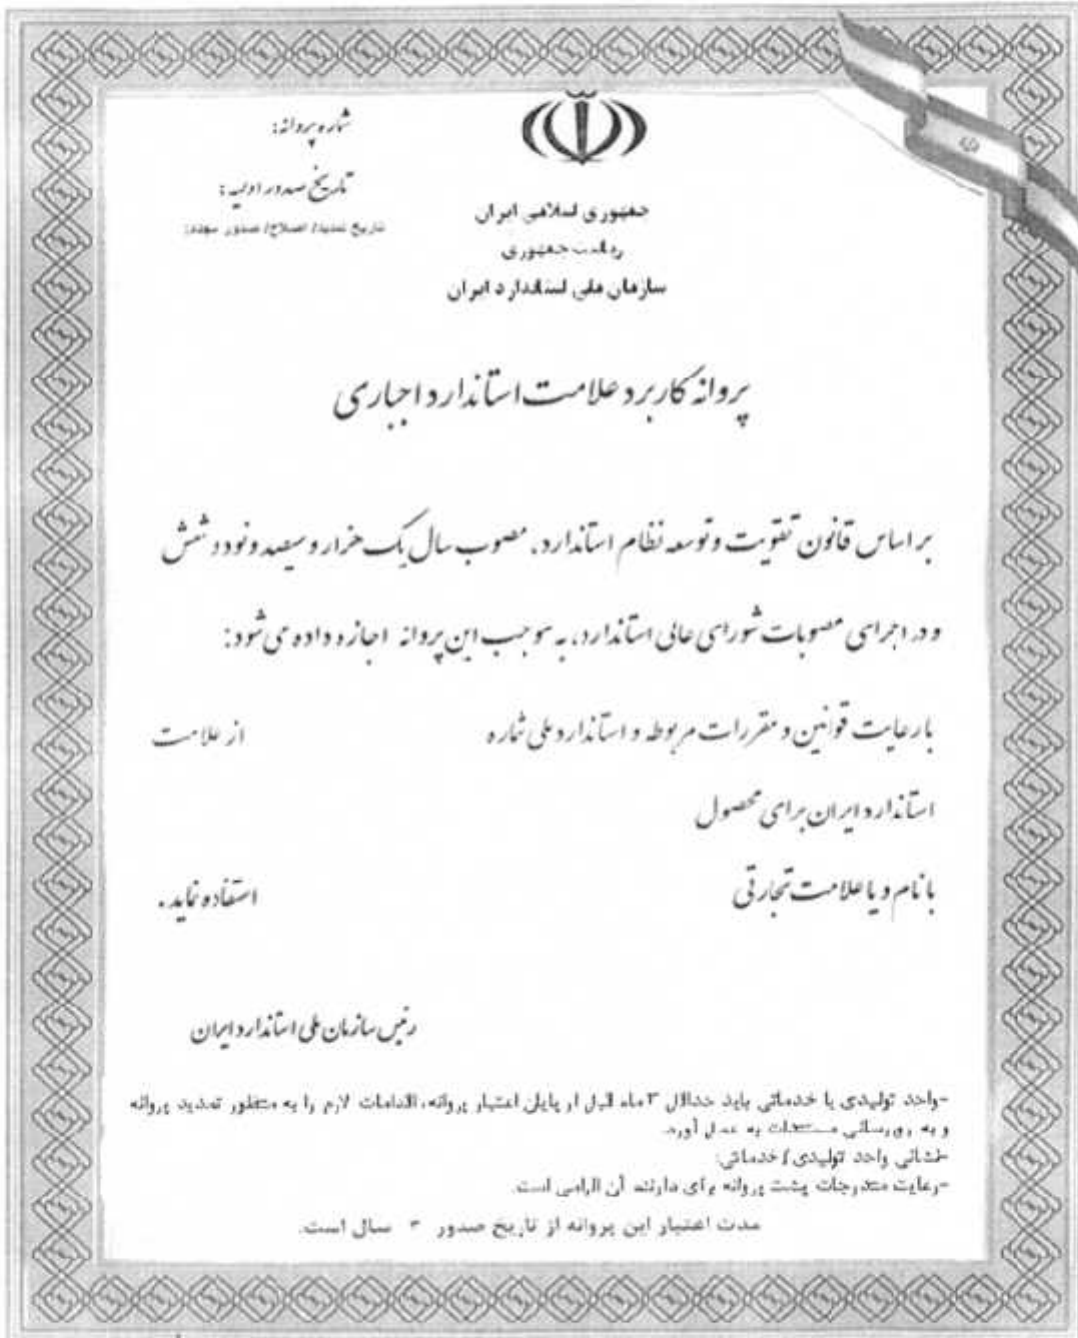 شماره پروانه:
تاریخ صدور اولیه:
تاریخ تمدید/ اصلاح/ صدور مجدد:
جمهوری اسلامی ایران
ریاست جمهوری
سازمان ملی استاندارد ایران
پروانه کاربرد علامت استاندارد اجباری
بر اساس قانون تقویت و توسعه نظام استاندارد، مصوب سال یک هزار و سیصد و نود و شش
و در اجرای مصوبات شورای عالی استاندارد، به موجب این پروانه اجازه داده می شود:
با رعایت قوانین و مقررات مربوطه و استاندارد ملی شماره از علامت
استاندارد ایران برای محصول
با نام و یا علامت تجارتی استفاده نماید.
رئیس سازمان ملی استاندارد ایران
-واحد تولیدی یا خدماتی باید حداقل ۳ ماه قبل از پایان اعتبار پروانه، اقدامات لازم را به منظور تمدید پروانه
و به روزرسانی مستندات به عمل آورد.
-نشانی واحد تولیدی/ خدماتی:
-رعایت مندرجات پشت پروانه برای دارنده آن الزامی است.
مدت اعتبار این پروانه از تاریخ صدور سال است.